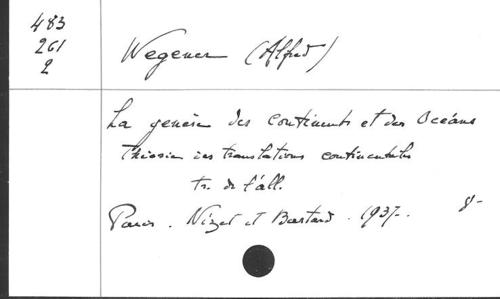 483
261
2
Wegener (Alfred)
La genèse des continents et des Océans
Théorie des translations continentales
tr. de l'all.
Paris. Nizet et Bastard. 1937. 8-